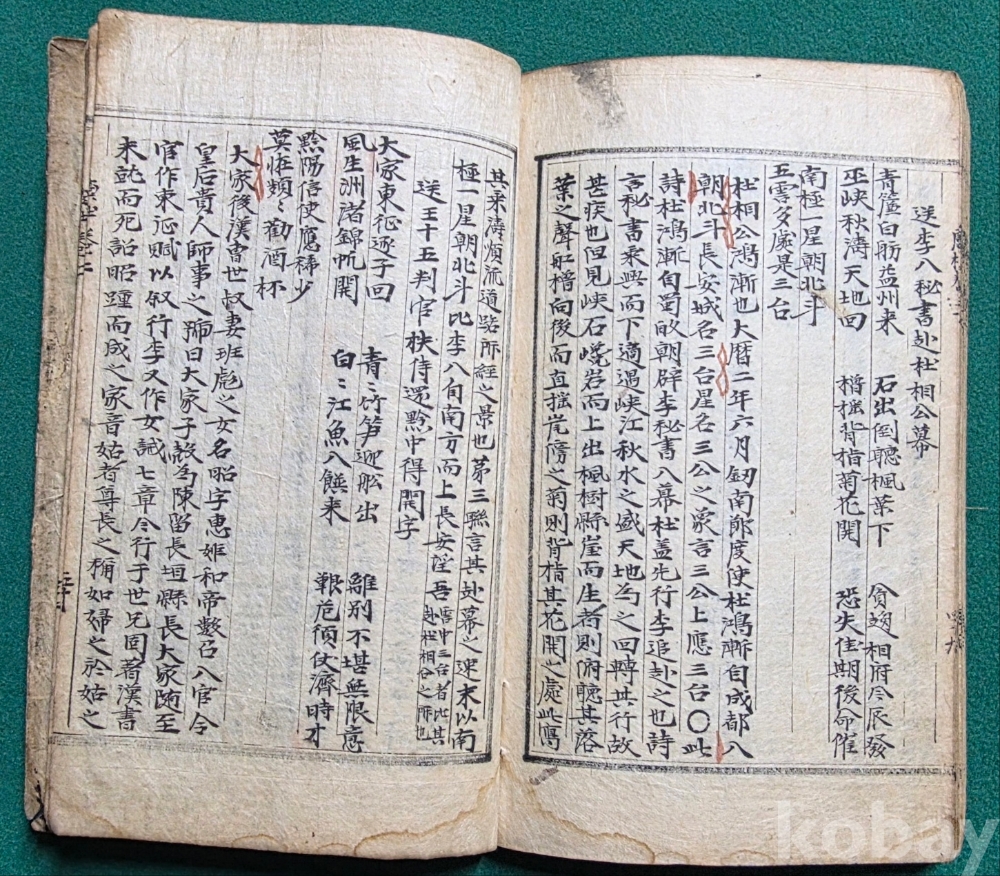 送李八秘書赴杜相公幕
青簾白舫益州来 石出倒聽楓葉下 貪趍相府今辰發
巫峡秋濤天地回 櫓搖背指菊花開 恐失佳期後命催
南極一星朝北斗
五雲多處是三台
杜相公鴻漸也大曆二年六月釼南節度使杜鴻漸自成都入
朝北斗長安城名三台星名三公之象言三公上應三台〇此
詩杜鴻漸自蜀還朝辟李秘書入幕杜盖先行李追赴之也詩
言秘書乘興而下適過峡江秋水之盛天地為之回轉其行故
甚疾也但見峡石嵯岩而上出楓樹縣崖而生者則俯聽其落
葉之聲舡櫓向後而直搖岸傍之菊則背指其花開之處此寫
其乘濤順流道路所經之景也第三聯言其赴幕之速末以南
極一星朝北斗比李八自南方而上長安 五雲中三台者比其
赴杜相公之所也
送王十五判官扶侍還黔中得開字
大家東征逐子回 青〻竹笋迎舩出 離別不堪無限意
風生洲渚錦帆開 白〻江魚入饌来 艱危須仗濟時才
黔陽信使應稀少
莫恠頻〻勸酒杯
大家後漢曹世叔妻班彪之女名昭字惠姬和帝數召入宮令
皇后貴人師事之號曰大家子穀為陳留長垣縣長大家随至
官作東征賦以叙行李又作女誡七章令行于世兄固著漢書
未就而死詔昭踵而成之家音姑者尊長之稱如婦之於姑之